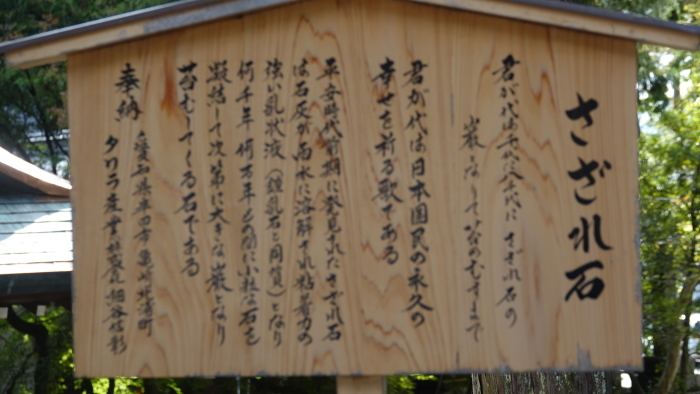 さざれ石
君が代は千代に八千代に さざれ石の
巌となりて苔のむすまで
君が代は日本国民の永久の
幸せを祈る歌である
平安時代前期に発見されたさざれ石
は石灰が雨水に溶解され粘着力の
強い乳状液(鍾乳石と同質)となり
何千年何万年との間に小粒な石を
凝結して次第に大きな巌となり
苔むしてくる石である
奉納
愛知県半田市亀崎北浦町
タワラ産業 細谷